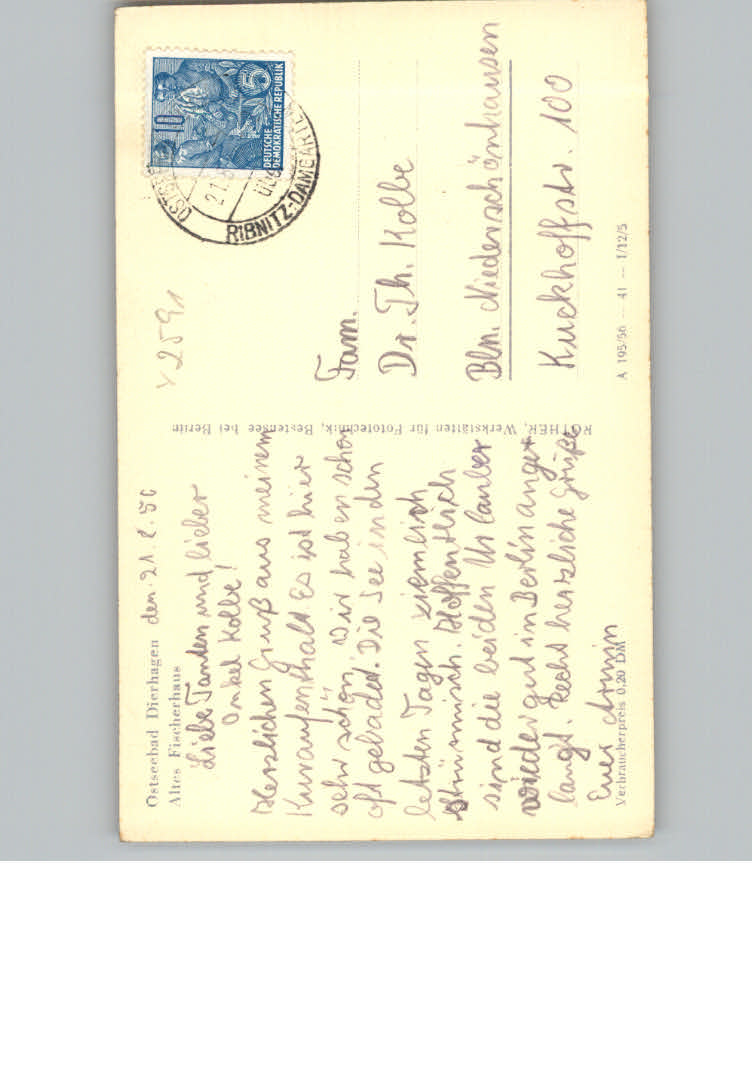 Ostseebad Dierhagen den. 21. 8. 56
Altes Fischerhaus
Liebe Tanten und lieber
Onkel Kolbe!
Herzlichen Gruß aus meinem
Kuraufenthalt. Es ist hier
sehr schön. Wir haben schon
oft gebadet. Die See in den
letzten Tagen ziemlich
stürmisch. Hoffentlich
sind die beiden Urlauber
wieder gut in Berlin ange
langt. Recht herzliche Grüße
Euer Armin
Verbraucherpreis 0,20 DM
ROTHER, Werkstätten für Fototechnik, Bestensee bei Berlin
x 2591
10
5
DEUTSCHE
DEMOKRATISCHE REPUBLIK
RIBNITZ-DAMGARTEN
Fam.
Dr. Th. Kolbe
Bln. Niederschönhausen
Kuckhoffstr. 100
A 195/56 — 41 — I/12/5